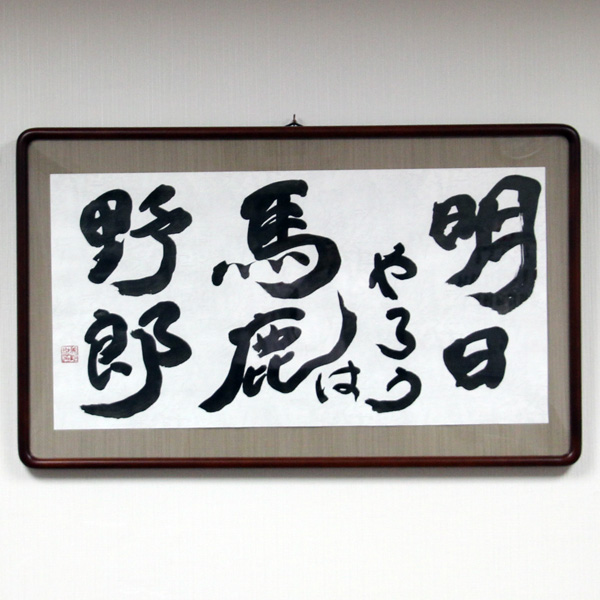 明日
やろうは
馬鹿
野郎